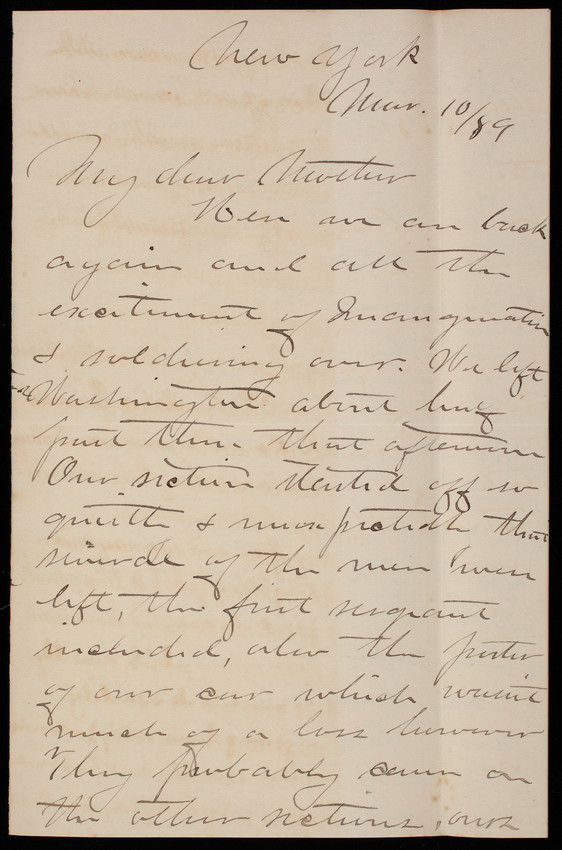 New York
Mar. 10/89
My dear Mother
Here we are back
again and all the
excitement of Inauguration
& soldiering over. We left
Washington about half
past three that afternoon
Our section started off so
quietly & unexpectedly that
several of the men were
left, the first sergeant
included, also the porter
of our car which wasn't
much of a loss however
They probably came on
the other sections, ours